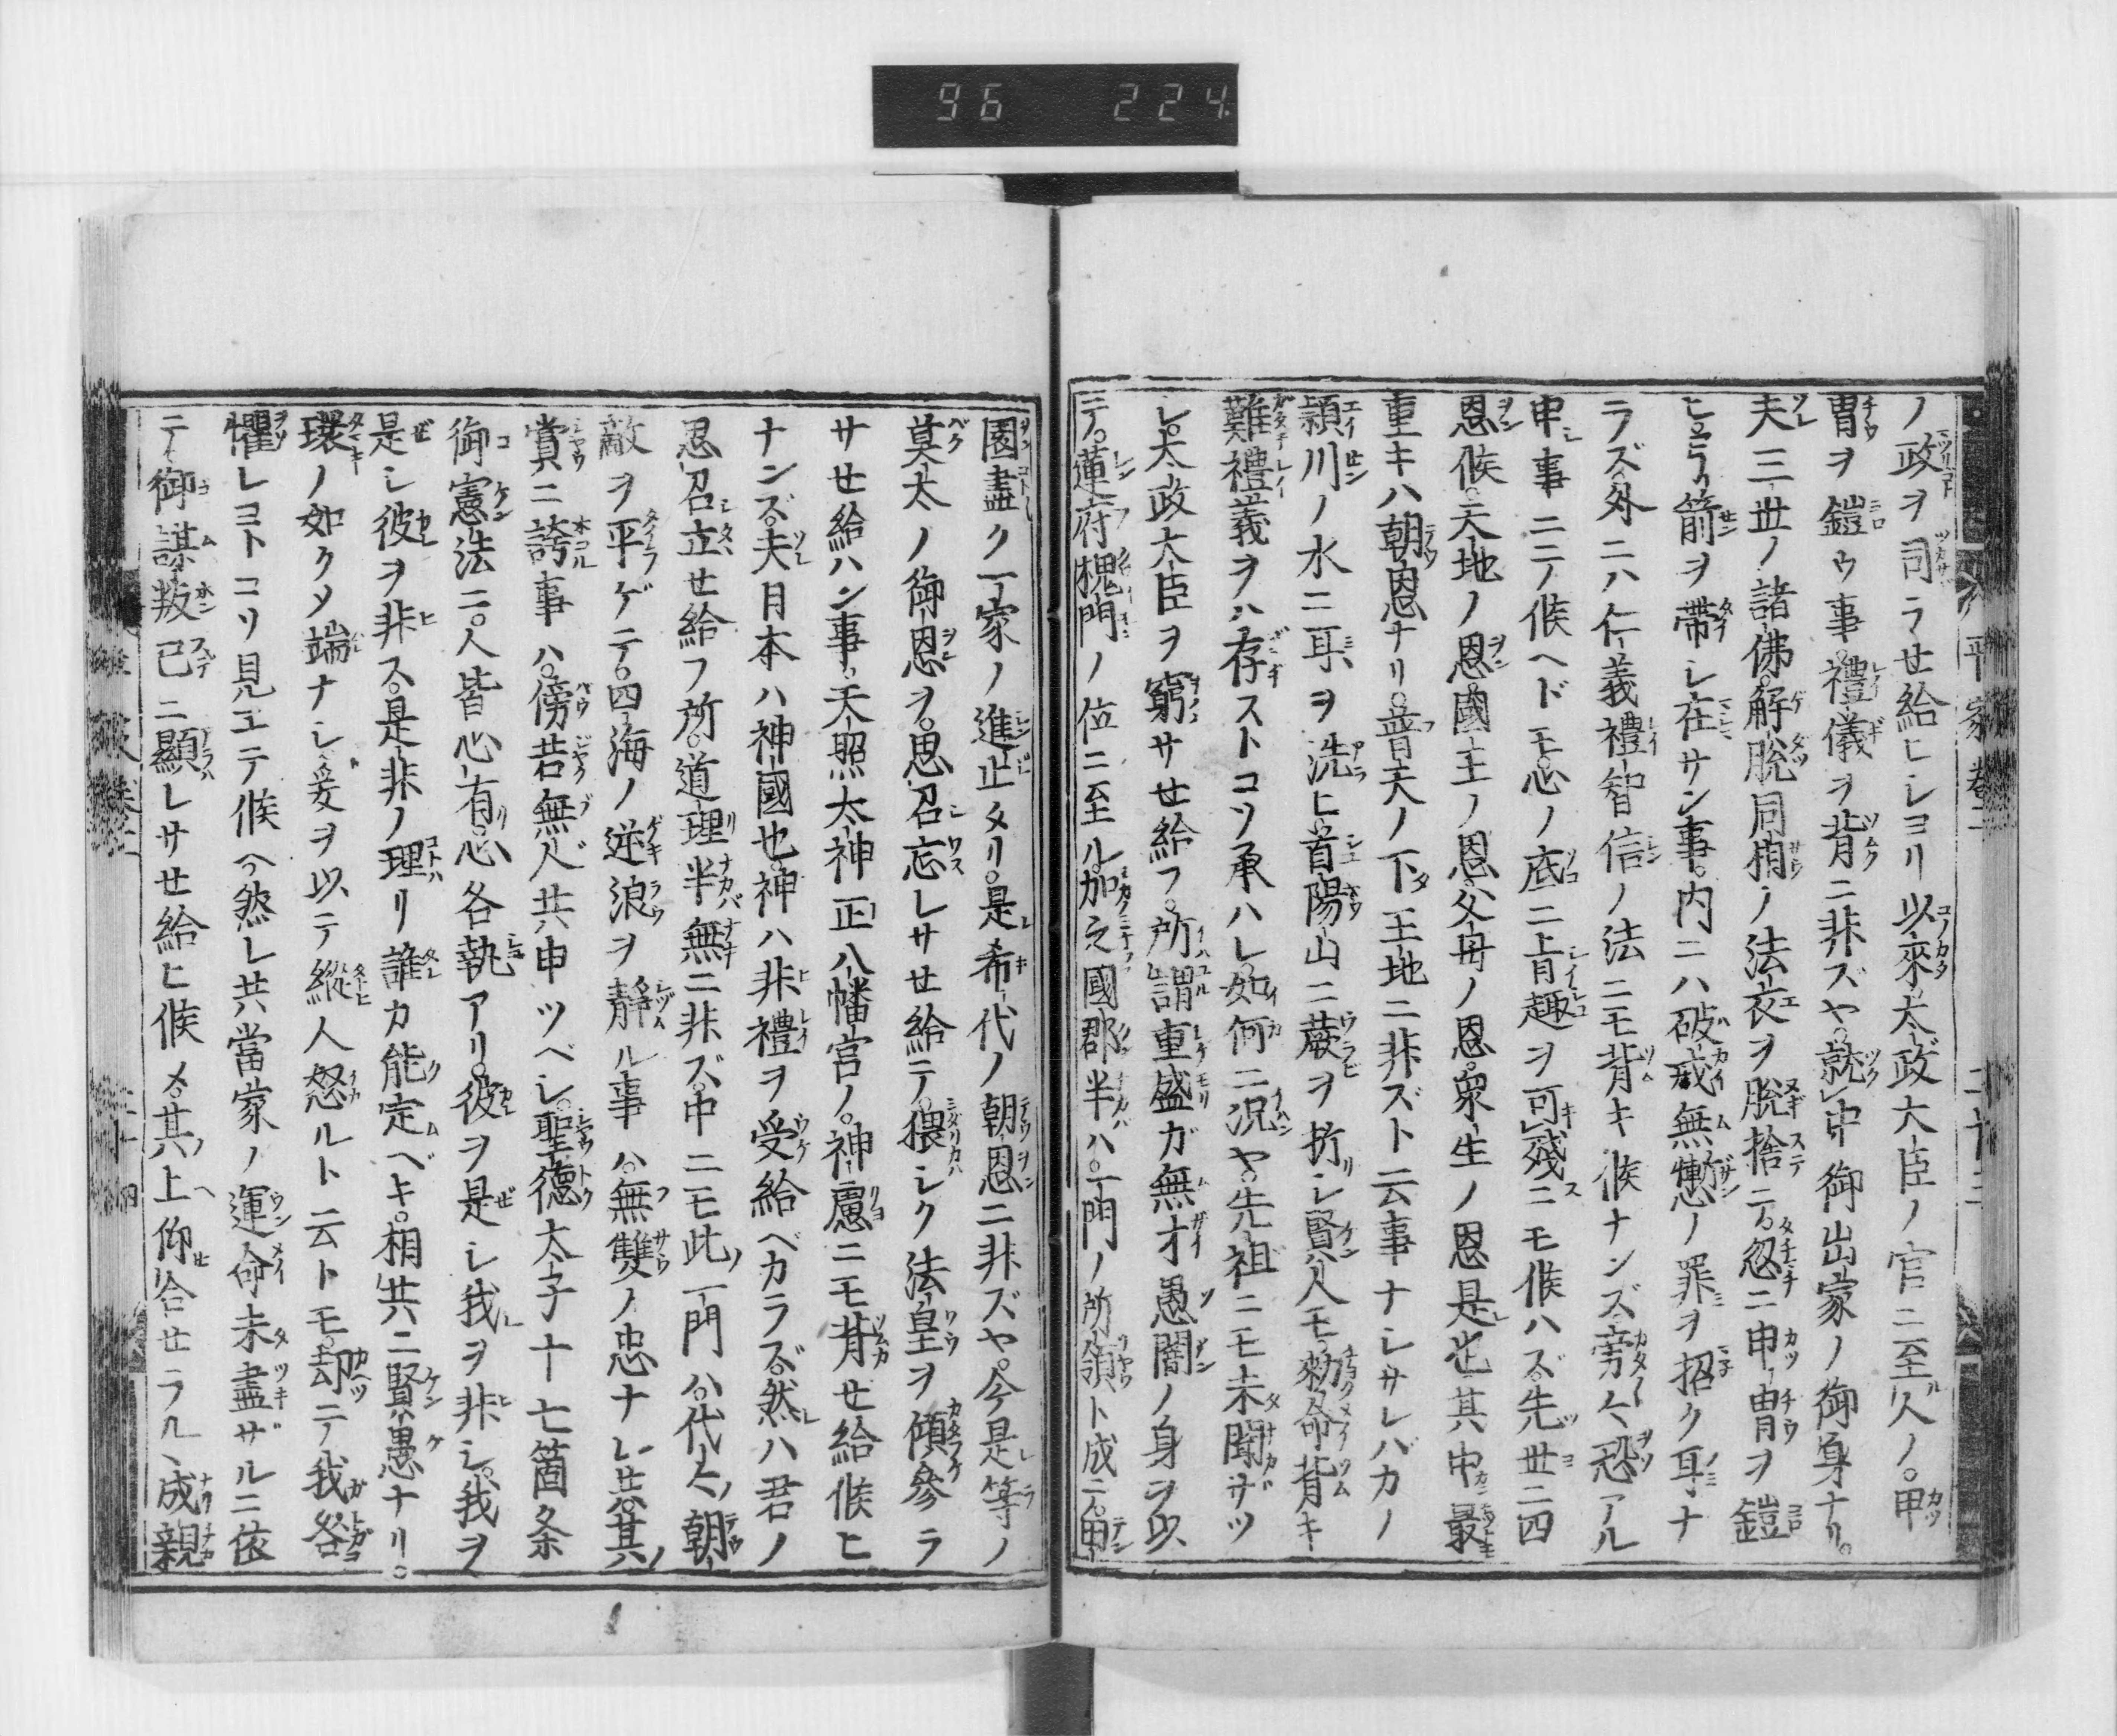 96 224
平家卷二
ノ政ヲ司ラせ給ヒシヨリ以來太政大臣ノ官ニ至人ノ。甲
冑ヲ鎧ウ事。禮儀ヲ背ニ非ズヤ。就中御出家ノ御身ナリ。
夫三世ノ諸佛。解脱同相ノ法衣ヲ脱捨テ。忽ニ甲冑ヲ鎧
ヒ弓箭ヲ帶シ在サン事。内ニハ破戒無慙ノ罪ヲ招ク耳ナ
ラズ。外ニハ仁義禮智信ノ法ニモ背キ候ナンズ。旁々恐アル
申事ニテ候ヘドモ。心ノ底ニ旨趣ヲ可殘ニモ候ハズ。先世ニ四
恩候。天地ノ恩。國王ノ恩。父母ノ恩。衆生ノ恩是也。其中最
重キハ朝恩ナリ。普天ノ下王地ニ非ズト云事ナシ。サレバカノ
潁川ノ水ニ耳ヲ洗ヒ。首陽山ニ蕨ヲ折シ賢人モ。勅命背キ
難禮義ヲハ存ストコソ承ハレ。如何ニ況ヤ。先祖ニモ未聞サツ
シ。太政大臣ヲ窮サせ給フ。所謂重盛ガ無才愚闇ノ身ヲ以
テ。蓮府槐門ノ位ニ至ル。加之國郡半ハ。一門ノ所領ト成テ。田
園盡ク一家ノ進止タリ。是希代ノ朝恩ニ非ズヤ。今是等ノ
莫太ノ御恩ヲ。思召忘レサせ給テ。猥シク法皇ヲ傾參ラ
サせ給ハン事。天照太神正八幡宮ノ。神慮ニモ背せ給候ヒ
ナンズ。夫日本ハ神國也。神ハ非禮ヲ受給ベカラズ。然ハ君ノ
思召立せ給フ所。道理半無ニ非ズ。中ニモ此一門ハ。代々ノ朝
敵ヲ平ゲテ。四海ノ逆浪ヲ靜ル事ハ。無雙ノ忠ナレ共。其ノ
賞ニ誇事ハ。傍若無人共申ツベシ。聖德太子十七箇条
御憲法ニ。人皆心有。心各執アリ。彼ヲ是シ我ヲ非シ。我ヲ
是シ彼ヲ非ス。是非ノ理リ誰カ能定ベキ。相共ニ賢愚ナリ。
環ノ如クメ端ナシ。爰ヲ以テ縱人怒ルト云トモ。却テ我咎
懼レヨトコソ見エテ候ヘ。然レ共當家ノ運命未盡ザルニ依
テ。御謀叛已ニ顯レサせ給ヒ候メ。其上仰合せラルヽ成親